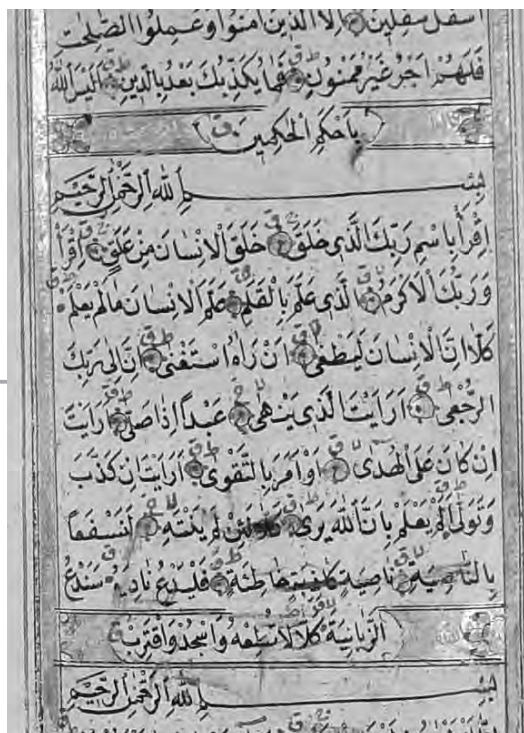 اسفل سفلين الا الذين امنوا وعملوا الصلحت
فلهم اجر غير ممنون فما يكذبك بعد بالدين اليس الله
باحكم الحكمين
بسم الله الرحمن الرحيم
اقرأ باسم ربك الذى خلق خلق الانسان من علق اقرأ
وربك الاكرم الذى علم بالقلم علم الانسان مالم يعلم
كلا ان الانسان ليطغى ان راه استغنى ان الى ربك
الرجعى ارايت الذى ينهى عبدا اذا صلى ارايت
ان كان على الهدى او امر بالتقوى ارايت ان كذب
وتولى الم يعلم بان الله يرى كلا لئن لم ينته لنسفعا
بالناصية ناصية كاذبة خاطئة فليدع ناديه سندع
الزبانية كلا لا تطعه واسجد واقترب
بسم الله الرحمن الرحيم